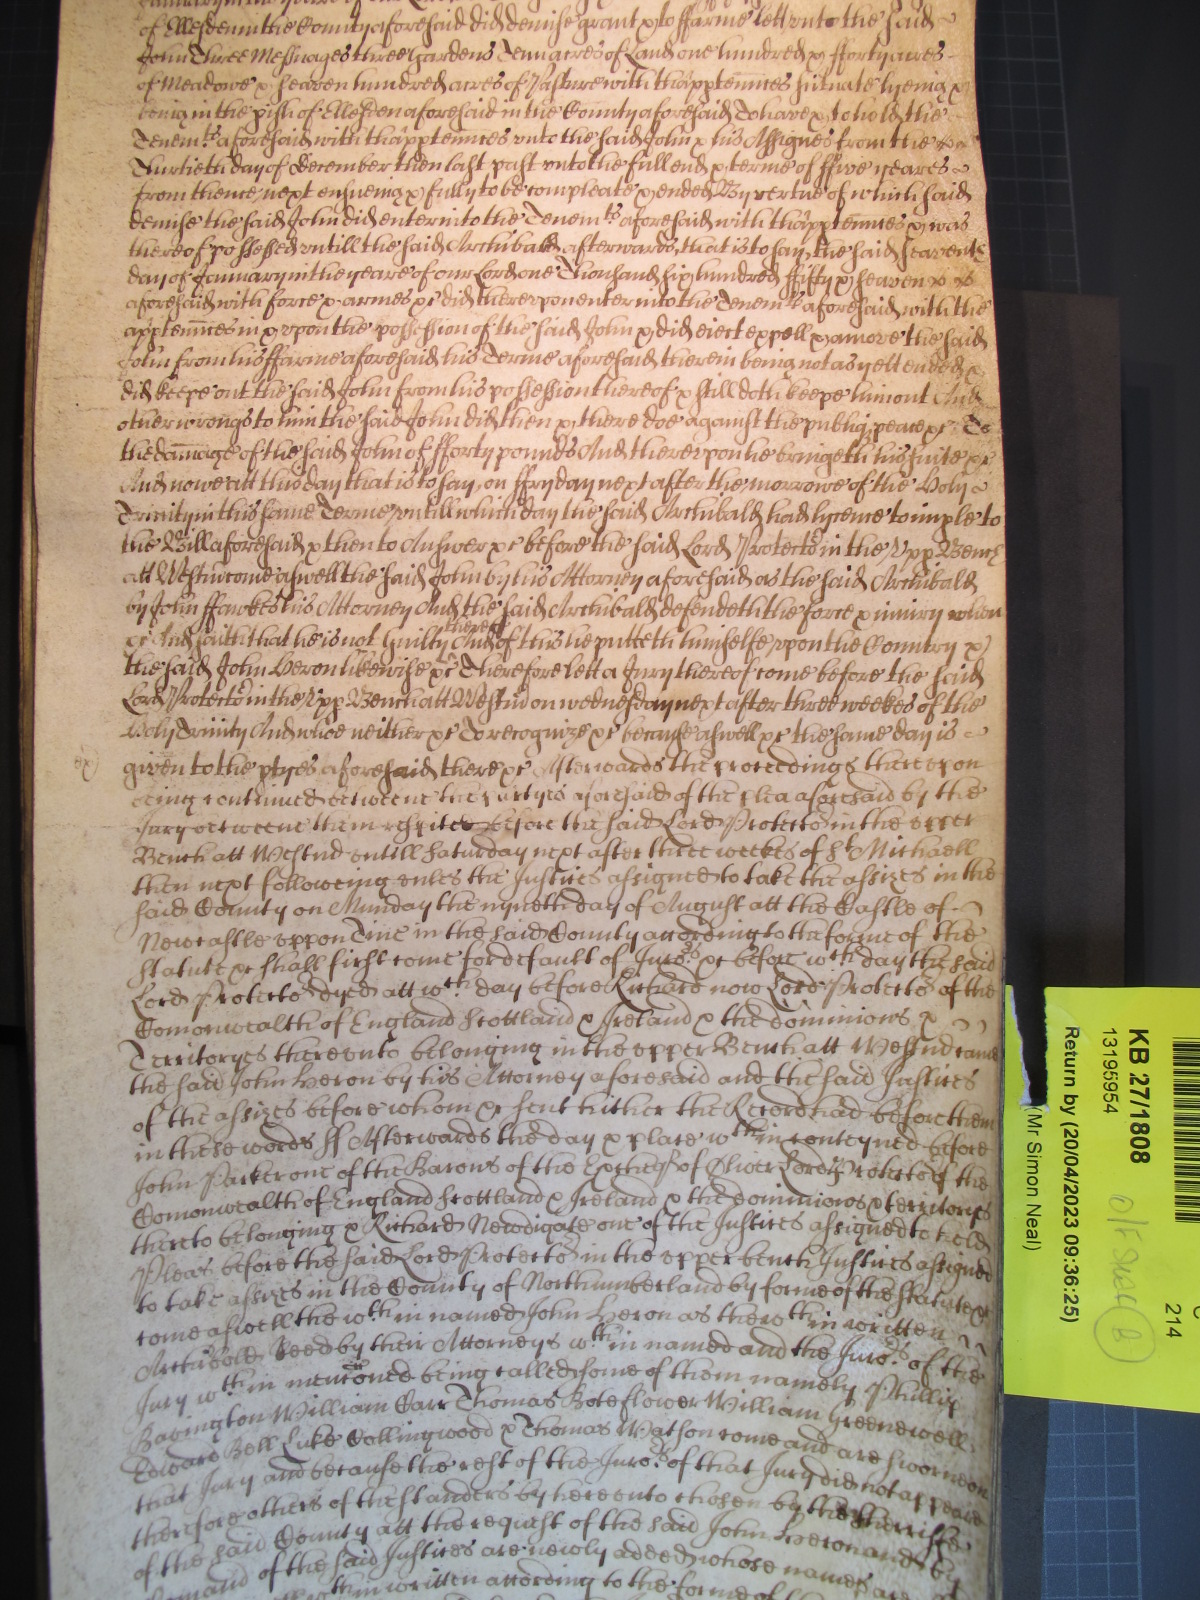 of Ellesden in the County aforesaid did demise grant & to ffarme lett unto the said
John Three Messuages three Gardens Tenn acres of Land one hundred & fforty acres
of Meadowe & seaven hundred acres of Pasture with thapptennces scituate lyeing &
being in the pish of Ellesden aforesaid in the County aforesaid To have & to hold the
Tenemts aforesaid with thapptennces unto the said John & his Assignes from the
Thirtieth day of december then last past unto the full end & terme of ffive yeares
from thence next ensueing & fully to be compleate & ended By vertue of which said
demise the said John did enter into the Tenemts aforesaid with thapptennces & was
thereof possessed untill the said Archibald afterwards, that is to say, the said seaventh
day of January in the yeare of our Lord one Thousand six hundred ffifty & seaven
aforesaid with force & armes &c did thereupon enter into the Tenemts aforesaid with the
apptennces in & upon the possession of the said John & did eiect expell & amove the said
John from his ffarme aforesaid his Terme aforesaid therein being not as yett ended &
did keepe out the said John from his possession thereof & still doth keepe him out And
other wrongs to him the said John did then & there doe against the publiq peace &c To
the damage of the said John of fforty pounds And thereupon he bringeth his suite &c
And nowe att this day that is to say, on ffryday next after the morrowe of the Holy
Trinity in this same Terme untill which day the said Archibald had lycence to imple to
the Bill aforesaid & then to Answer &c before the said Lord Protector in the Upp Bench
att Westm come aswell the said John by his Attorney aforesaid as the said Archibald
by John ffawkes his Attorney And the said Archibald defendeth the force & iniury when
&c And saith that he is not Guilty thereof And of this he putteth himselfe upon the Country &
the said John Heron likewise &c Therefore lett a Jury thereof come before the said
Lord Protector in the Upp Bench att Westm on wednesday next after three weekes of the
Holy Trinity And whoe neither &c To recognize &c because aswell &c the same day is
given to the ptyes aforesaid there &c Afterwards the proceedings thereupon
being continued betweene the partyes aforesaid of the plea aforesaid by the
Jury betweene them respited before the said Lord Protector in the upper
Bench att Westmr untill Saturday next after three weekes of St Michaell
then next following unles the Justices assigned to take the assizes in the
said County on Munday the nyneth day of August att the Castle of
Newcastle uppon Tine in the said County according to the forme of the
statute &c shall first come for default of Juros &c before wch day the said
Lord Protector dyed att wch day before Richard now Lord Protector of the
Comonwealth of England Scottland & Ireland & the dominions &
Territoryes thereunto belonging in the upper Bench att Westmr came
the said John Heron by his Attorney aforesaid and the said Justices
of the assizes before whom &c sent hither the Record had before them
in these words ss Afterwards the day & place wthin conteyned before
John Parker one of the Barons of the Excheqr of Oliver Lord Protector of the
Comonwealth of England Scottland & Ireland & the dominions & territoryes
thereto belonging & Richard Newdigate one of the Justices assigned to hold
Pleas before the said Lord Protector in the upper bench Justices assigned
to take assizes in the County of Northumberland by forme of the statute &c
come aswell the wthin named John Heron as the wthin written
Archibold Reed by their Attorneys wthin named and the Juros of the
Jury wthin mencioned being called some of them namely Phillip
Bavington William Carr Thomas Boteflower William Greenewell
Edward Bell Luke Collingwood & Thomas Watson come and are sworne on
that Jury and because the rest of the Juros of that Jury did not appeare
therefore others of the standers by hereunto chosen by the Sherriffe
of the said County att the request of the said John Heron and by
comand of the said Justices are newly added whose names are
written according to the forme of
KB 27/1808
13195954
Return by (20/04/2023 09:36:25)
(Mr Simon Neal)
214